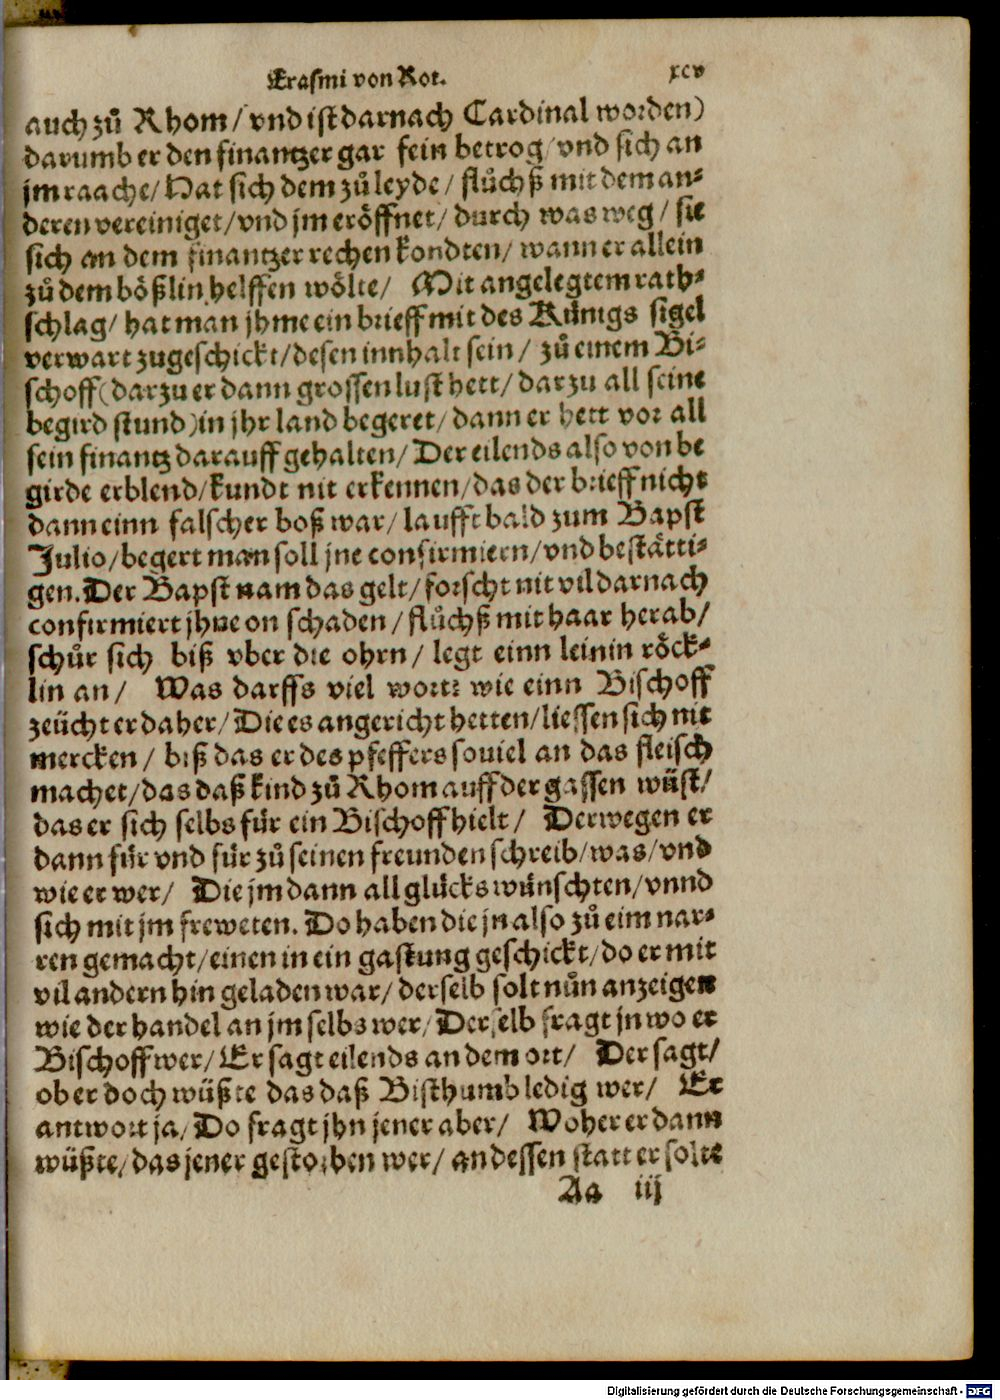 Erasmi von Rot. xcv
auch zuͦ Rhom / vnd ist darnach Cardinal worden)
darumb er den finantzer gar fein betrog / vnd sich an
jm raache / Hat sich dem zuͦ leyde / fluͦchß mit dem an⸗
deren vereiniget / vnd jm eröffnet / durch was weg / sie
sich an dem finantzer rechen kondten / wann er allein
zuͦ dem bößlin helffen wölte / Mit angelegtem rath⸗
schlag / hat man jhme ein brieff mit des Künigs sigel
verwart zugeschickt / desen innhalt sein / zuͦ einem Bi⸗
schoff (darzu er dann grossen lust hett / darzu all seine
begird stund) in jhr land begeret / dann er hett vor all
sein finantz darauff gehalten / Der eilends also von be
girde erblend / kundt nit erkennen / das der brieff nicht
dann einn falscher boß war / laufft bald zum Bapst
Julio / begert man soll jne confirmiern / vnd bestätti⸗
gen. Der Bapst nam das gelt / forscht nit vil darnach
confirmiert jhne on schaden / fluͦchß mit haar herab /
schuͦr sich biß vber die ohrn / legt einn leinin röck⸗
lin an / Was darffs viel wort: wie einn Bischoff
zeücht er daher / Die es angericht hetten / liessen sich nit
mercken / biß das er des pfeffers souiel an das fleisch
machet / das daß kind zuͦ Rhom auff der gassen wüst /
das er sich selbs für ein Bischoff hielt / Derwegen er
dann für vnd für zuͦ seinen freunden schreib / was / vnd
wie er wer / Die jm dann all glücks wünschten / vnnd
sich mit jm freweten. Do haben die jn also zuͦ eim nar⸗
ren gemacht / einen in ein gastung geschickt / do er mit
vil andern hin geladen war / derselb solt nuͦn anzeigen
wie der handel an jm selbs wer / Derselb fragt jn wo er
Bischoff wer / Er sagt eilends an dem ort / Der sagt /
ob er doch wüßte das daß Bisthumb ledig wer / Er
antwort ja / Do fragt jhn jener aber / Woher er dann
wüßte / das jener gestorben wer / an dessen statt er solte
Aa iij
Digitalisierung gefördert durch die Deutsche Forschungsgemeinschaft - DFG